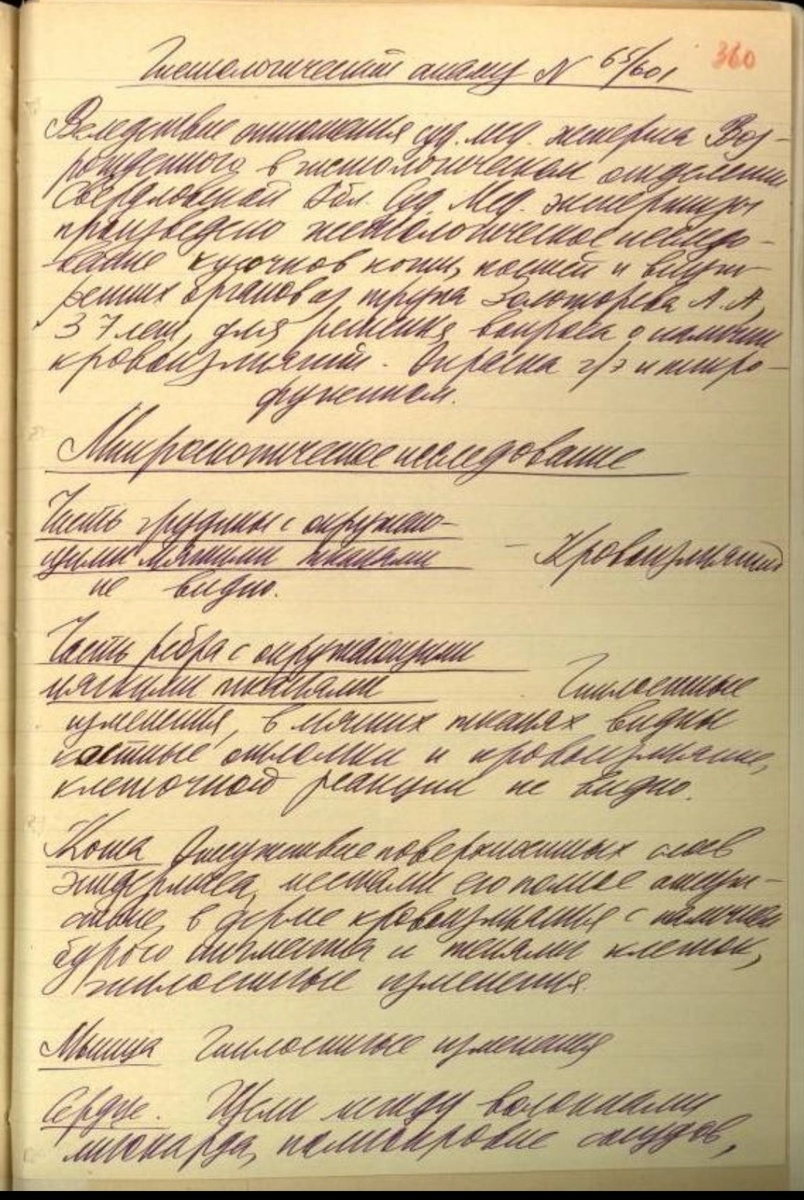 360
Гистологический анализ N 65/601
Вследствие отношения суд. мед. эксперта Воз-
рожденного в гистологическом отделении
Свердловской Обл. Суд. Мед. экспертизы
произведено гистологическое исследо-
вание кусочков кожи, костей и внут-
ренних органов от трупа Золоторева А. А,
37 лет, для решения вопроса о наличии
кровоизлияний. Окраска г/э и пикро-
фуксином.
Микроскопическое исследование
Часть грудины с окружаю-
щими мягкими тканями – Кровоизлияний
не видно.
Часть ребра с окружающими
мягкими тканями Гнилостные
изменения, в мягких тканях видны
костные отломки и кровоизлияние,
клеточной реакции не видно.
Кожа Отсутствие поверхностных слоев
эпидермиса, местами его полное отсут-
ствие, в дерме кровоизлияния с наличием
бурого пигмента и тенями клеток,
гнилостные изменения.
Мышца Гнилостные изменения
Сердце. Щели между волокнами
миокарда, полнокровие сосудов,